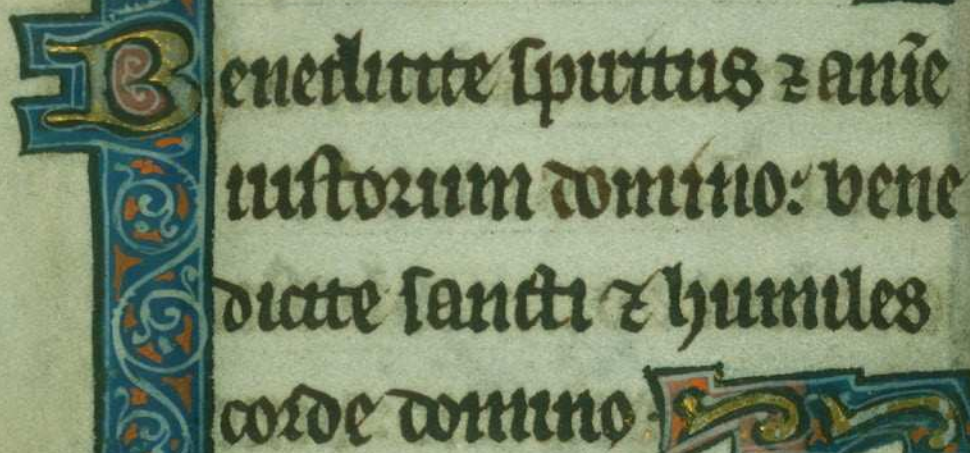 Benedicite spiritus ⁊ anīe
iustorum domino: bene
dicite sancti ⁊ humiles
corde domino